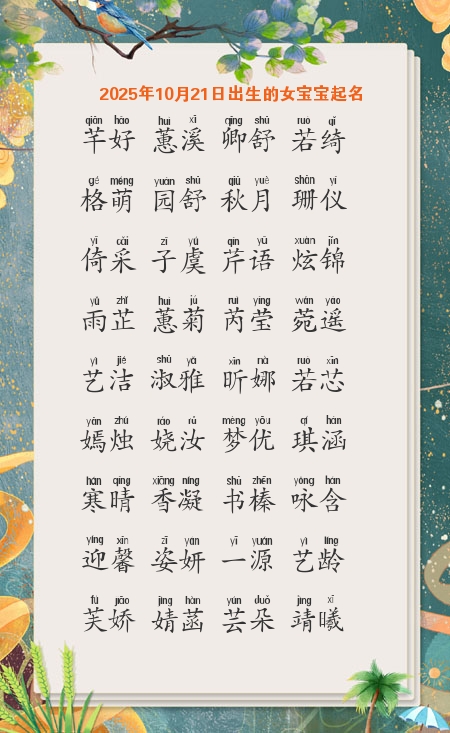 2025年10月21日出生的女宝宝起名
qiān hǎo huì xī qīng shū ruò qǐ
芊好 蕙溪 卿舒 若绮
gé méng yuán shū qiū yuè shān yí
格萌 园舒 秋月 珊仪
yǐ cǎi zǐ yú qín yǔ xuàn jǐn
倚采 子虞 芹语 炫锦
yǔ zhǐ huì jú ruì yíng wǎn yáo
雨芷 蕙菊 芮莹 菀遥
yì jié shū yǎ xīn nà ruò xīn
艺洁 淑雅 昕娜 若芯
yān zhú ráo rǔ mèng yōu qí hán
嫣烛 娆汝 梦优 琪涵
hán qíng xiāng níng shū zhēn yǒng hán
寒晴 香凝 书榛 咏含
yíng xīn zī yán yī yuán yì líng
迎馨 姿妍 一源 艺龄
fú jiāo jìng hàn yún duǒ jìng xī
芙娇 婧菡 芸朵 靖曦